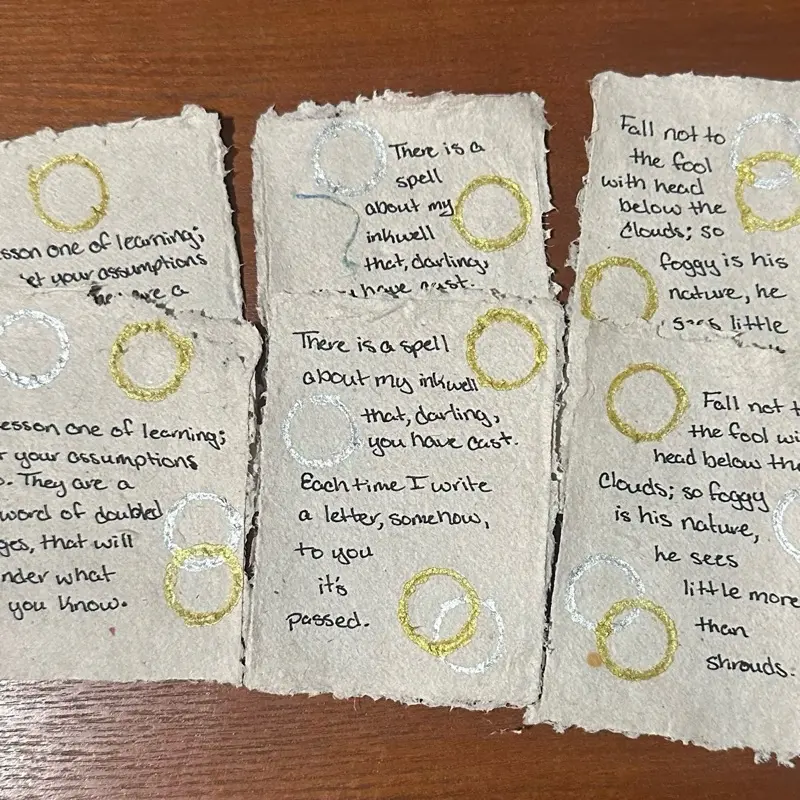 sson one of learning;
et your assumptions
are a
There is a
spell
about my
inkwell
that, darling,
have cast.
Fall not to
the fool
with head
below the
Clouds; so
foggy is his
nature, he
sees little
esson one of learning;
your assumptions
They are a
word of doubled
ges, that will
nder what
you know.
There is a spell
about my inkwell
that, darling,
you have cast.
Each time I write
a letter, somehow,
to you
it's
passed.
Fall not t
the fool wi
head below the
Clouds; so foggy
is his nature,
he sees
little more
than
shrouds.